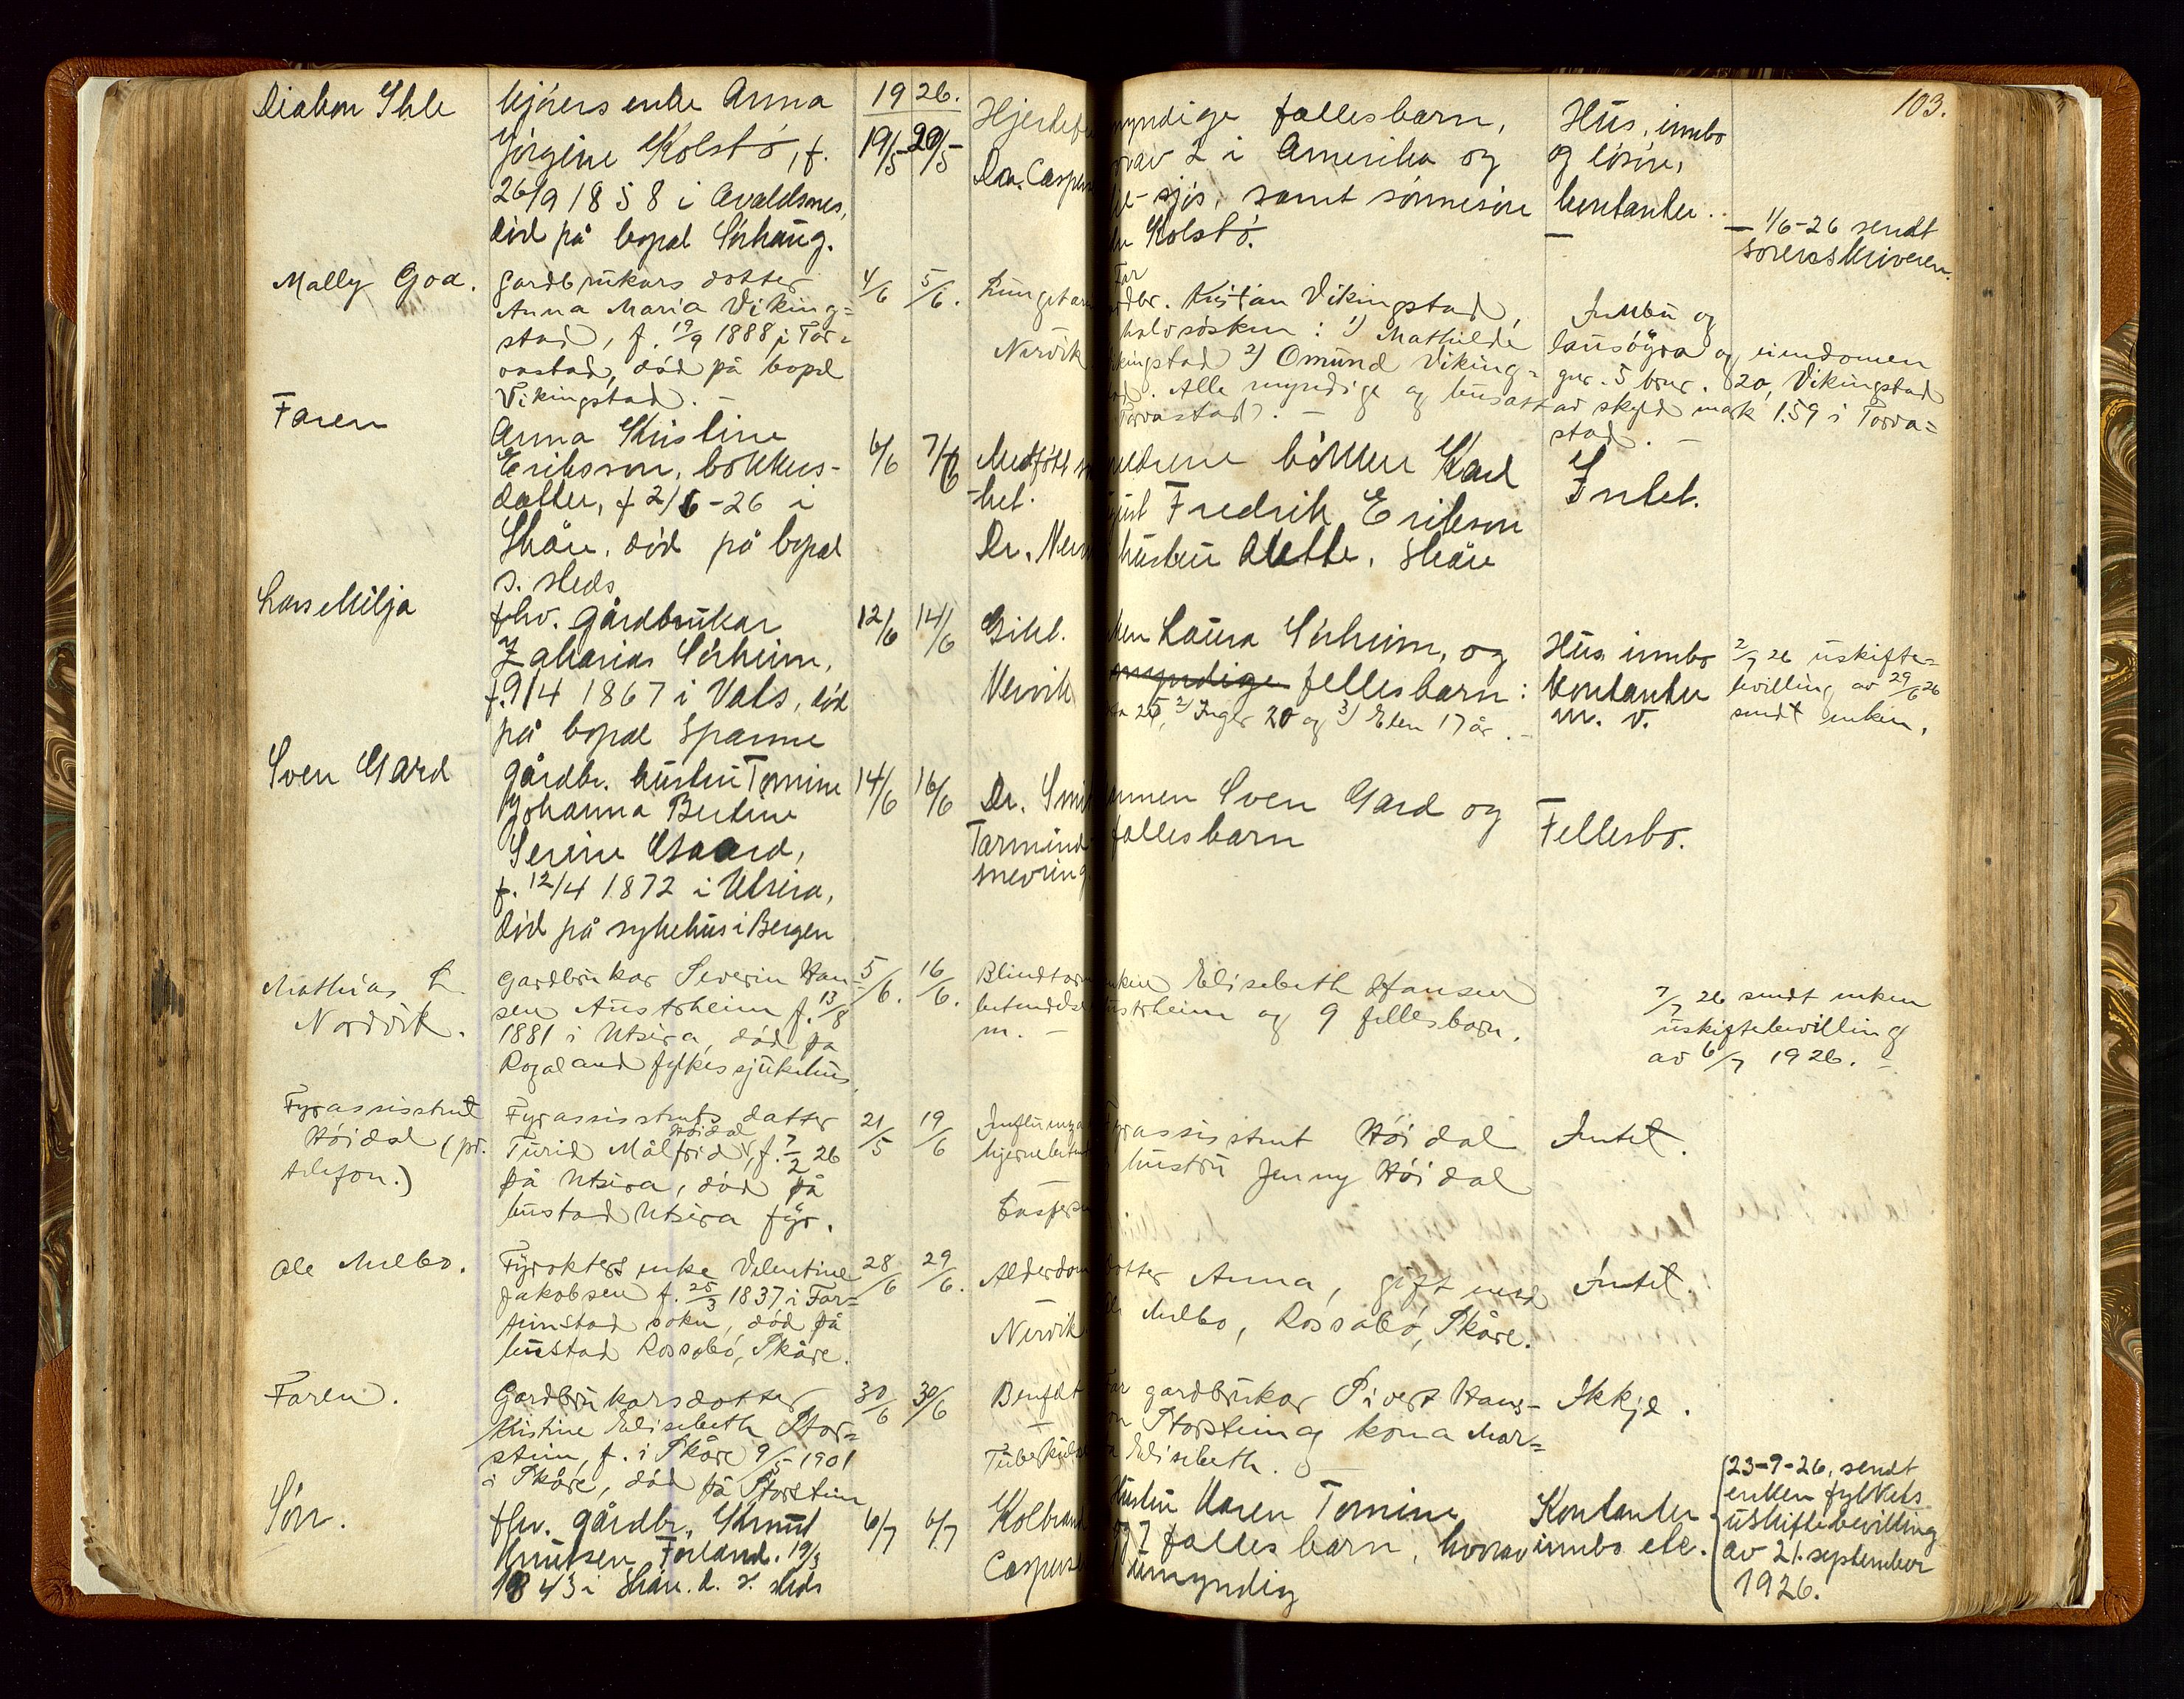 103.
19 26.
Diakon Ihle
kjörers enke Anna
Jörgine Kolstö, f.
26/9 1858 i Avaldsnes,
död på bopel Sörhaug.
19/5 20/5
Hjertef
Dr. Caspers
myndige fallesbarn,
hvorav 2 i Amerika og
sjös, samt sönnesön
Kolstö.
Hus, innbo
og lösöre,
kontanter.
— 1/6-26 sendt
sorenskriveren.
Mally Goa.
Gardbrukars dotter
Anna Maria Viking=
stad, f. 19/9 1888 i Tor=
vastad, död på bopel
Vikingstad. —
4/6 5/6.
Lungetær
Nervik
Far
gardbr. Kristian Vikingstad,
halvsösken: 1) Mathilde
Vikingstad 2) Omund Viking=
stad. Alle myndige og busatt
Torvastad). —
Innbu og
lausöyra og eiendomen
gnr. 5 bnr. 20, Vikingstad
av skyld mark 1.59 i Torva=
stad. —
Faren
Anna Kristine
Erikson, bökkers-
datter, f 2/6-26 i
Skåre, död på bopel
s. steds
6/6 7/6
Medfödt s
-het.
Dr. Nerv
foreldrene bökker Karl
August Fredrik Erikson
hustru Alette, Skåre
Intet.
Lars Milja
fhv. gårdbruker
Zakarias Sörheim,
f. 9/4 1867 i Vats, död
på bopel Spanne
12/6 14/6
Gikt.
Nervik
enken Laura Sörheim, og
myndige fellesbarn:
25, 2) Inger 20 og 3) Elen 17 år. —
Hus innbo
kontanter
m. v.
2/7 26 uskifte=
bevilling av 29/6 26
sendt enken.
Sven Gard
gårdbr. hustru Tomine
Johanna Bertine
Serine Gaard,
f. 12/4 1872 i Utsira,
död på sykehus i Bergen
14/6 16/6
Dr. Smi
Tarmind
snevring
mannen Sven Gard og
fallesbarn
Fellesbo.
Mathias L.
Nordvik.
Gardbrukar Severin Han=
sen Austrheim f. 13/8
1881 i Utsira, död på
Rogaland fylkes sjukehus.
5/6. 16/6.
Blindtarm
betendelse
m. —
enken Elisebeth Hansen
Austrheim og 9 fellesborn.
7/7 26 sendt enken
uskiftebevilling
av 6/7 1926. —
Fyrassistent
Höidal (pr.
telefon.)
Fyrassistents datter
Turid Målfrid Höidal, f. 7/2 26
på Utsira, död på
bustad Utsira fyr.
21/5 19/6
Influenza
hjernebetend
Caspersen
Fyrassistent Höidal
hustru Jenny Höidal
Intet.
Ole Melbo.
Fyrvokters enke Velentine
Jakobsen f. 25/3 1837 i Tor=
sokn, död på
bustad Rossabö, Skåre.
28/6 29/6.
Alderdom
Nervik
dotter Anna, gift med
Ole Melbo, Rossabö, Skåre.
Intet.
Faren.
Gardbrukarsdotter
Kristine Elisebeth Stor=
stein, f. i Skåre 9/5 1901
i Skåre, död på Storstein
30/6 30/6
Benfdt
—
Tuberkulos
Far gardbrukar Sivert Hans=
Storstein og kona Mar=
Elisebeth. —
Ikkje.
Sön.
fhv. gårdbr. Knut
Knutsen Førland. 19/3
1843 i Skåre. d. s. steds
6/7 6/7
Kolbrand
Caspersen
Hustru Karen Tomine
og 7 falles barn, hvorav
umyndig
Kontanter
innbo etc.
23-9-26, sendt
enken fylkets
uskiftebevilling
av 21. september
1926.